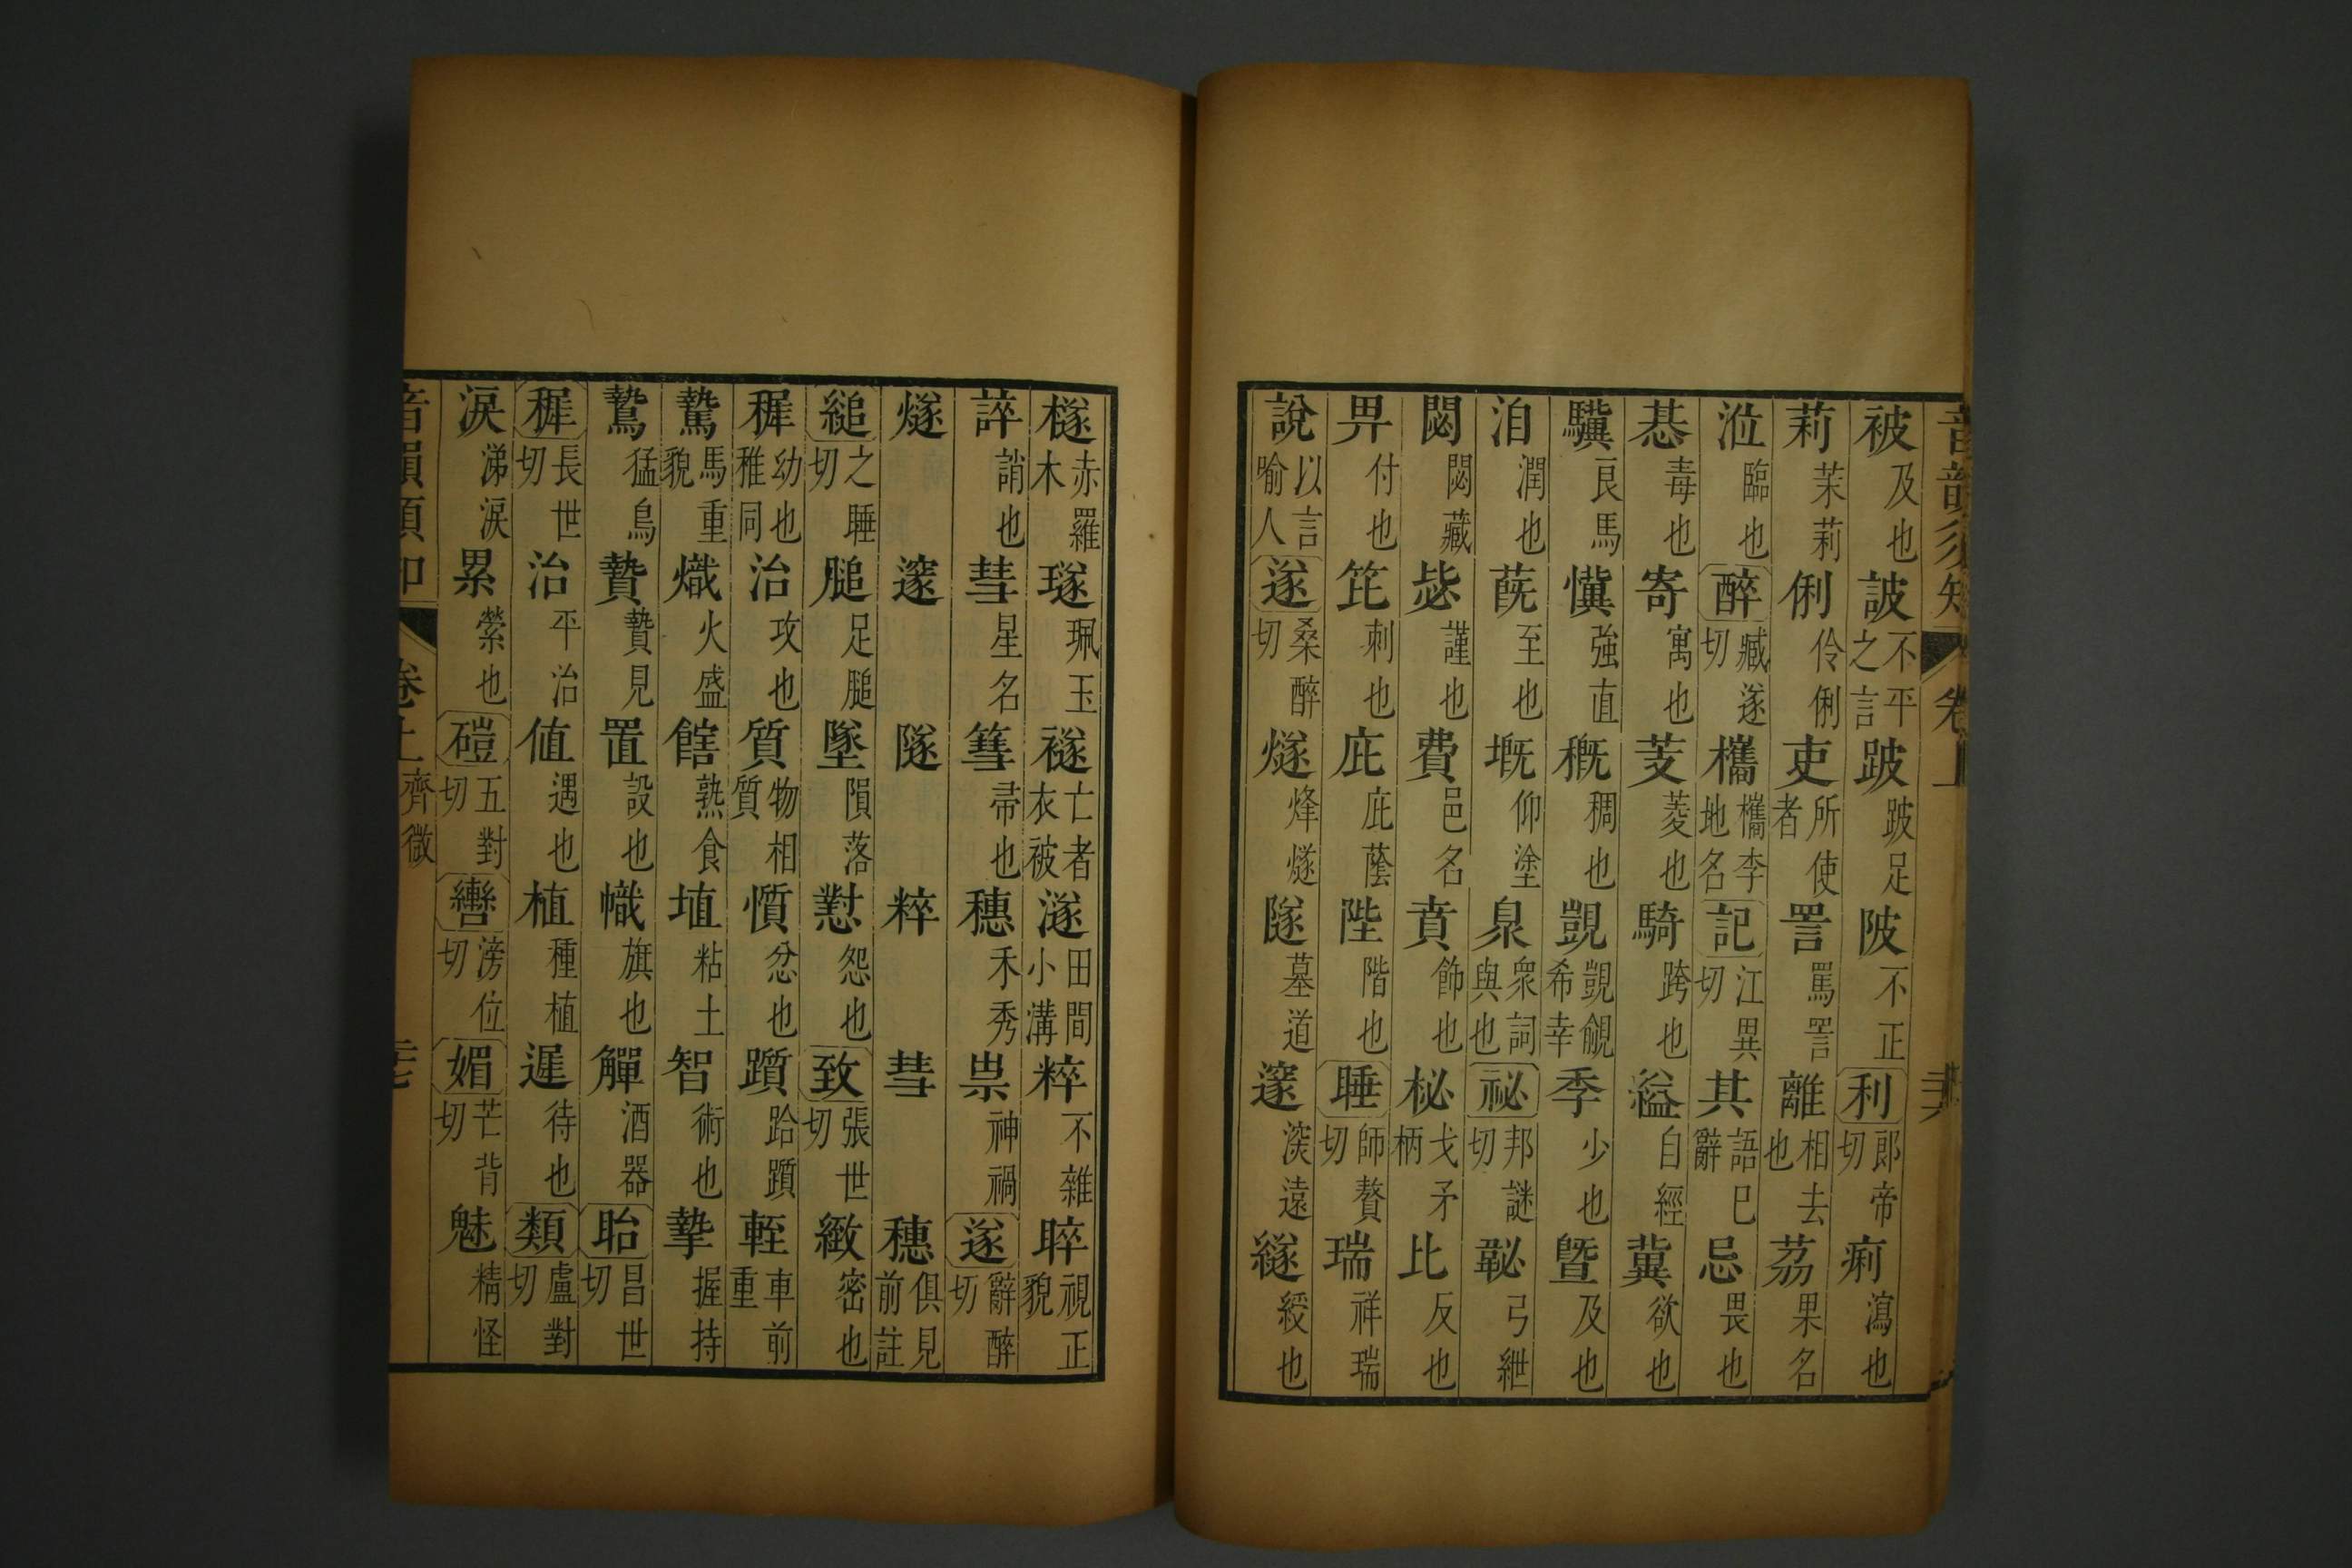 被及也詖不平之言跛跛足陂不正利郎帝切痢瀉也
莉茉莉俐伶俐吏所使者詈罵詈離相去也茘果名
涖臨也醉臧遂切檇檇李地名記江異切其語巳辭忌畏也
惎毒也寄寓也芰菱也騎跨也縊自經冀欲也
驥良馬懻強直穊稠也覬覬覦希幸季少也曁及也
洎潤也蔇至也塈仰塗臮衆詞與也祕邦謎切䩛弓紲
閟閟藏毖謹也費邑名賁飾也柲戈矛柄比反也
畀付也庇刺也庇庇蔭陛階也睡師贅切瑞祥瑞
說以言喻人遂桑醉切燧烽燧隧墓道邃深遠繸綬也
檖赤羅木璲珮玉襚亡者衣被澻田間小溝粹不雜睟視正貌
誶誚也彗星名篲帚也穗禾秀祟神禍遂辭醉切
燧邃隧粹彗穗俱見前註
縋之睡切膇足膇墜隕落懟怨也致張世切緻密也
稺幼也稚同治攻也質物相質懫忿也躓跲躓輊車前重
騺馬重貌熾火盛饎熟食埴粘土智術也摯握持
鷙猛鳥贄贄見置設也幟旗也觶酒器眙昌世切
稺長世切治平治値遇也植種植遲待也類盧對切
涙涕涙累縈也磑五對切轡滂位切媚芒背切魅精怪
卷上 齊微